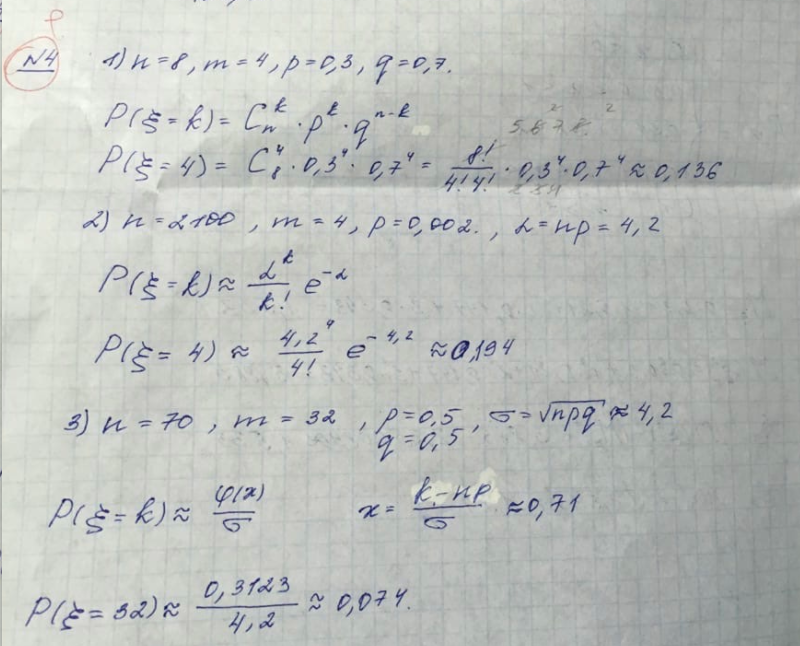 №4
1) n=8, m=4, p=0,3, q=0,7.
P(ξ=k)= C_n^k · p^k · q^{n-k}
5.6.7.8.
P(ξ=4)= C_8^4 · 0,3^4 · 0,7^4 = 8!/(4!4!) · 0,3^4 · 0,7^4 ≈ 0,136
2) n=2100, m=4, p=0,002., λ=np=4,2
P(ξ=k)≈ λ^k/k! e^{-λ}
P(ξ=4) ≈ 4,2^4/4! e^{-4,2} ≈0,194
3) n=70, m=32, p=0,5, σ=√npq ≈ 4,2
q=0,5
P(ξ=k)≈ φ(x)/σ x= (k-np)/σ ≈0,71
P(ξ=32)≈ 0,3123/4,2 ≈ 0,074.